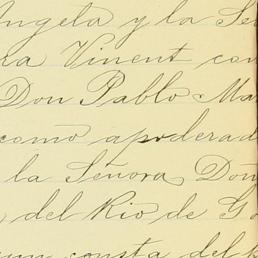 Angela y la Se
ra Vinent con
Don Pablo Ma
como apoderad
la Señora Doñ
del Rio de Go
cun consta del p